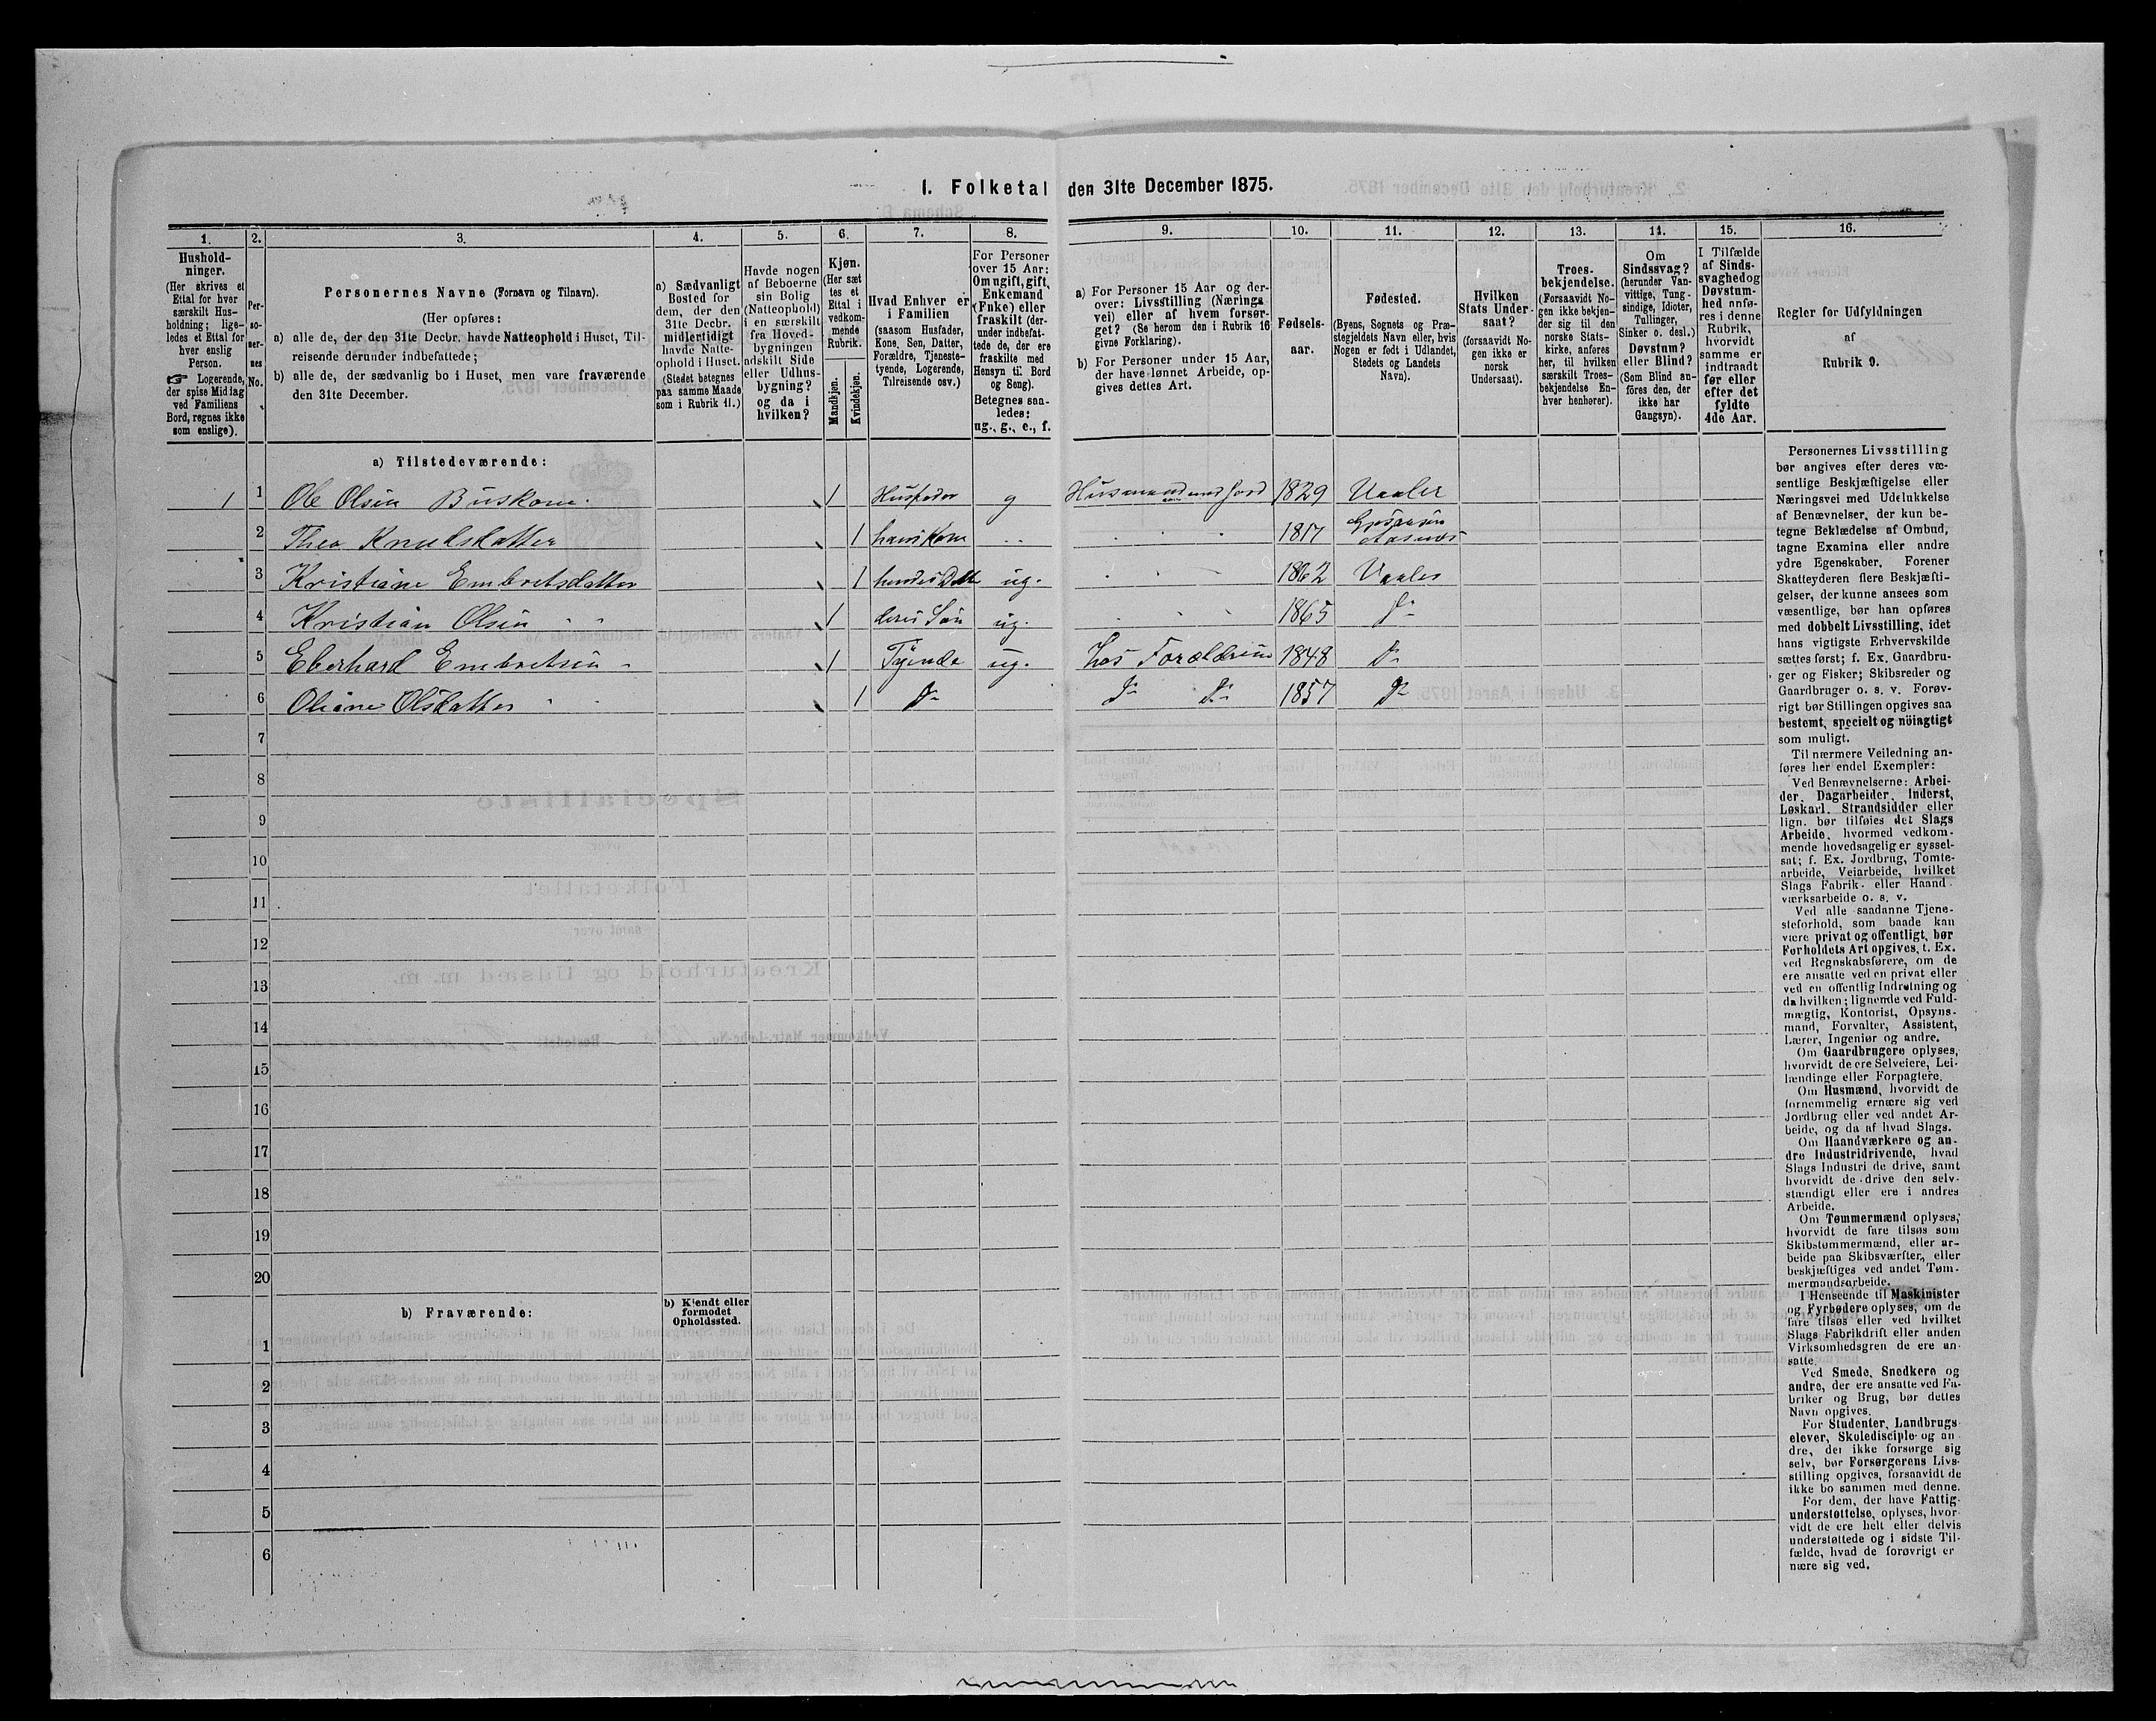 1. Folketal den 31te December 1875.
1. 2. 3. 4. 5. 6. 7. 8. 9. 10. 11. 12. 13. 14. 15. 16.
Hushold-
ninger.
(Her skrives et
Ettal for hver
særskilt Hus-
holdning; lige-
ledes et Ettal for
hver enslig
Person.
☞ Logerende,
der spise Middag
ved Familiens
Bord, regnes ikke
som enslige).
Per-
so-
ner-
nes
No.
Personernes Navne (Fornavn og Tilnavn).
(Her opføres:
a) alle de, der den 31te Decbr. havde Natteophold i Huset, Til-
reisende derunder indbefattede;
b) alle de, der sædvanlig bo i Huset, men vare fraværende
den 31te December.
a) Sædvanligt
Bosted for
dem, der den
31te Decbr.
midlertidigt
havde Natte-
ophold i Huset.
(Stedet betegnes
paa samme Maade
som i Rubrik 11.)
Havde nogen
af Beboerne
sin Bolig
(Natteophold)
i en særskilt
fra Hoved-
bygningen
adskilt Side
eller Udhus-
bygning?
og da i
hvilken?
Kjøn.
(Her sæt
tes et
Ettal i
vedkom-
mende
Rubrik.
Mandkjøn.
Kvindekjøn.
Hvad Enhver er
i Familien
(saasom Husfader,
Kone, Søn, Datter,
Forældre, Tjeneste-
tyende, Logerende,
Tilreisende osv.)
For Personer
over 15 Aar:
Om ugift, gift,
Enkemand
(Enke) eller
fraskilt (der-
under indbefat-
tede de, der ere
fraskilte med
Hensyn til Bord
og Seng).
Betegnes saa-
ledes:
ug., g., e., f.
a) For Personer 15 Aar og der-
over: Livsstilling (Nærings
vei) eller af hvem forsør-
get? (Se herom den i Rubrik 16
givne Forklaring).
b) For Personer under 15 Aar,
der have lønnet Arbeide, op-
gives dettes Art.
Fødsels-
aar.
Fødested.
(Byens, Sognets og Præ-
stegjeldets Navn eller, hvis
Nogen er født i Udlandet,
Stedets og Landets
Navn).
Hvilken
Stats Under-
saat?
(forsaavidt No-
gen ikke er
norsk
Undersaat).
Troes-
bekjendelse.
(Forsaavidt No-
gen ikke bekjen-
der sig til den
norske Stats-
kirke, anføres
her, til hvilken
særskilt Troes-
bekjendelse En-
hver henhører).
Om
Sindssvag?
(herunder Van-
vittige, Tung-
sindige, Idioter,
Tullinger,
Sinker o. desl.)
Døvstum?
eller Blind?
(Som Blind an-
føres den, der
ikke har
Gangsyn).
I Tilfælde
af Sinds-
svaghed og
Døvstum-
hed anfø-
res i denne
Rubrik,
hvorvidt
samme er
indtraadt
før eller
efter det
fyldte
4de Aar.
Regler for Udfyldningen
af
Rubrik 9.
a) Tilstedeværende:
1 1 Ole Olsen Buskom 1 Husfader g 1829 Vaaler
2 Thea Knudsdatter 1 hans Kone 1817 Aasnes
3 Kristiane Embretsdatter 1 hendes Datt ug. 1862 Vaaler
4 Kristian Olsen 1 deres Søn ug. 1865 Do
5 Eberhard Embretsen 1 Tyende ug. hos Forældrene 1848 Do
6 Oliane Olsdatter 1 Do Do Do 1857 Do
7
8
9
10
11
12
13
14
15
16
17
18
19
20
b) Fraværende:
b) Kjendt eller
formodet
Opholdssted.
1
2
3
4
5
6
Personernes Livsstilling
bør angives efter deres væ-
sentlige Beskjæftigelse eller
Næringsvei med Udelukkelse
af Benævnelser, der kun be-
tegne Beklædelse af Ombud,
tagne Examina eller andre
ydre Egenskaber. Forener
Skatteyderen flere Beskjæfti-
gelser, der kunne ansees som
væsentlige, bør han opføres
med dobbelt Livsstilling, idet
hans vigtigste Erhvervskilde
sættes først; f. Ex. Gaardbru-
ger og Fisker; Skibsreder og
Gaardbruger o. s. v. Forøv-
rigt bør Stillingen opgives saa
bestemt, specielt og nöiagtigt
som muligt.
Til nærmere Veiledning an-
føres her endel Exempler:
Ved Benævnelserne: Arbei-
der, Dagarbeider, Inderst,
Løskarl, Strandsidder eller
lign. bør tilføies det Slags
Arbeide, hvormed vedkom-
mende hovedsagelig er syssel-
sat; f. Ex. Jordbrug, Tomte-
arbeide, Veiarbeide, hvilket
Slags Fabrik- eller Haand-
værksarbeide o. s. v.
Ved alle saadanne Tjene-
steforhold, som baade kan
være privat og offentligt, bør
Forholdets Art opgives, t. Ex.
ved Regnskabsførere, om de
ere ansatte ved en privat eller
ved en offentlig Indretning og
da hvilken; lignende ved Fuld-
mægtig, Kontorist, Opsyns-
mand, Forvalter, Assistent,
Lærer, Ingeniør og andre.
Om Gaardbrugere oplyses,
hvorvidt de ere Selveiere, Lei-
lændinge eller Forpagtere.
Om Husmænd, hvorvidt de
fornemmelig ernære sig ved
Jordbrug eller ved andet Ar-
beide, og da af hvad Slags.
Om Haandværkere og an-
dre Industridrivende, hvad
Slags Industri de drive, samt
hvorvidt de drive den selv-
stændigt eller ere i andres
Arbeide.
Om Tømmermænd oplyses,
hvorvidt de fare tilsøs som
Skibstømmermænd, eller ar-
beide paa Skibsværfter, eller
beskjæftiges ved andet Tøm-
mermandsarbeide.
I Henseende til Maskinister
og Fyrbødere oplyses, om de
fare tilsøs eller ved hvilket
Slags Fabrikdrift eller anden
Virksomhedsgren de ere an-
satte.
Ved Smede, Snedkere og
andre, der ere ansatte ved Fa-
briker og Brug, bør dettes
Navn opgives.
For Studenter, Landbrugs-
elever, Skoledisciple og an-
dre, der ikke forsørge sig
selv, bør Forsørgerens Livs-
stilling opgives, forsaavidt de
ikke bo sammen med denne.
For dem, der have Fattig-
understøttelse, oplyses, hvor-
vidt de ere helt eller delvis
understøttede og i sidste Til-
fælde, hvad de forøvrigt er-
nære sig ved.